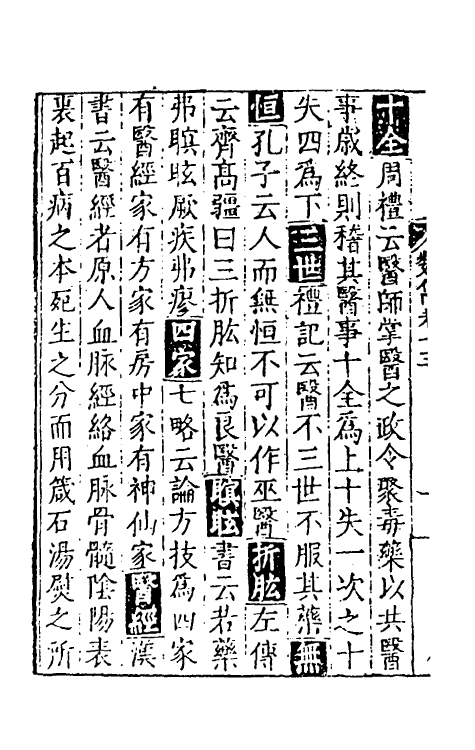 十全周禮云醫師掌醫之政令聚毒藥以共醫
事歲終則稽其醫事十全爲上十失一次之十
失四爲下三世禮記云醫不三世不服其藥無
恒孔子云人而無恒不可以作巫醫折肱左傳
云齊高彊曰三折肱知爲良醫瞑眩書云若藥
弗瞑眩厥疾弗瘳四家七略云論方技爲四家
有醫經家有方家有房中家有神仙家醫經漢
書云醫經者原人血脉經絡血脉骨髓陰陽表
裏起百病之本死生之分而用箴石湯熨之所